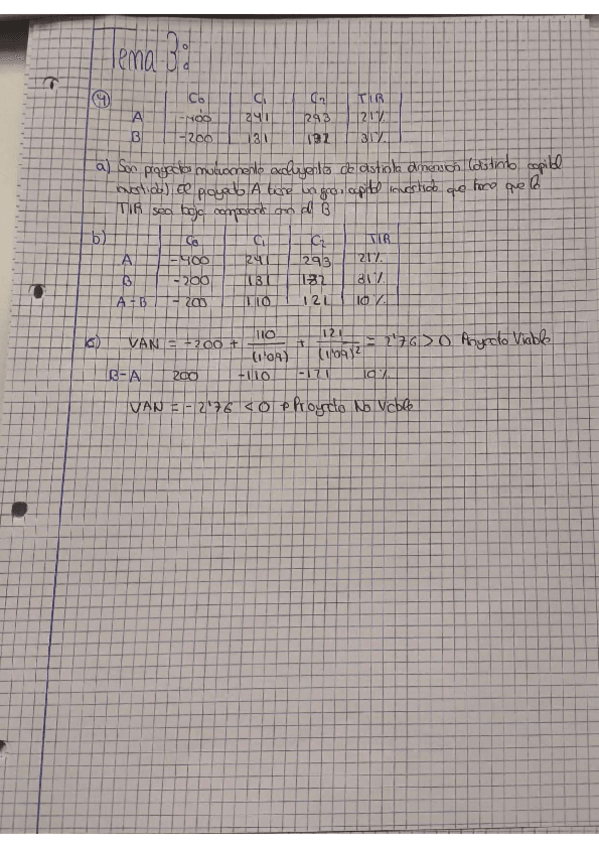 Tema 3:
④ C₀ C₁ C₂ TIR
A -400 241 293 21%
B -200 131 172 31%
a) Son proyectos mutuamente excluyentes de distinta dimensión (distinto capital
invertido), el proyecto A tiene un gran capital invertido que hace que la
TIR sea baja comparada con el B
b) C₀ C₁ C₂ TIR
A -400 241 293 21%
B -200 131 172 31%
A-B -200 110 121 10%
c) VAN = -200 + 110/(1'09) + 121/(1'09)² = 2'76 > 0 Proyecto Viable
B-A 200 -110 -121 10%
VAN = -2'76 < 0 → Proyecto No Viable